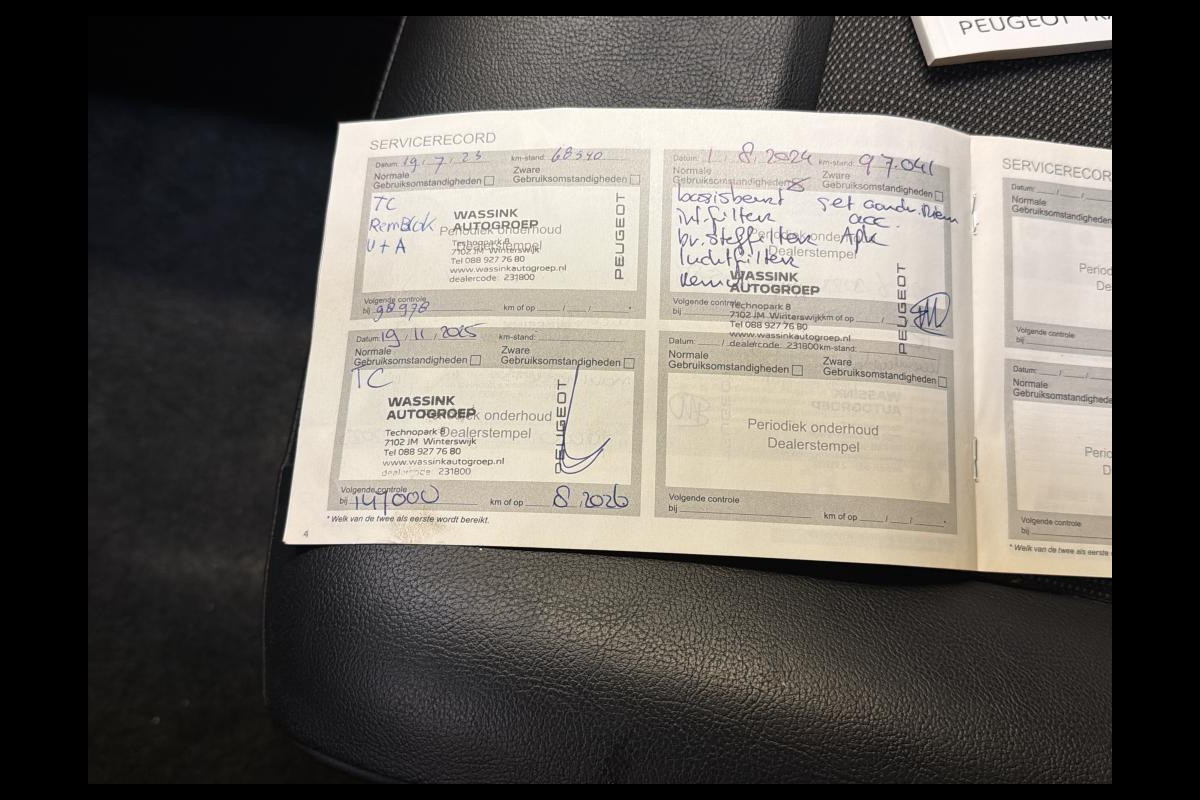 PEUGEOT
SERVICERECORD
Datum: 19.7.23 km-stand: 68340
Normale Gebruiksomstandigheden
Zware Gebruiksomstandigheden
TC
RemBlok
V+A
WASSINK
AUTOGROEP
Periodiek onderhoud
Dealerstempel
Technopark 8
7102 JM Winterswijk
Tel 088 927 76 80
www.wassinkautogroep.nl
dealercode: 231800
PEUGEOT
Volgende controle
bij 98978 km of op __/__/__ *
Datum: 1.8.2024 km-stand: 97.041
Normale Gebruiksomstandigheden
Zware Gebruiksomstandigheden
basisbeurt
int.filter acc.
filter Apk
luchtfilter
Periodiek onderhoud
Dealerstempel
WASSINK
AUTOGROEP
Technopark 8
7102 JM Winterswijk
Tel 088 927 76 80
dealercode: 231800
PEUGEOT
Volgende controle
bij km of op
Datum: 19.11.2025 km-stand:
Normale Gebruiksomstandigheden
Zware Gebruiksomstandigheden
TC
WASSINK
AUTOGROEP
Periodiek onderhoud
Dealerstempel
Technopark 8
7102 JM Winterswijk
Tel 088 927 76 80
www.wassinkautogroep.nl
dealercode: 231800
PEUGEOT
Volgende controle
bij 141000 km of op 8.2026
* Welk van de twee als eerste wordt bereikt.
4
Datum: __/ km-stand:
Normale Gebruiksomstandigheden
Zware Gebruiksomstandigheden
Periodiek onderhoud
Dealerstempel
Volgende controle
bij km of op __/__/__ *
SERVICERECOR
Datum: __/__/__
Normale
Gebruiksomstandigheden
Period
De
Volgende controle
bij
Datum: __/__/__
Normale
Gebruiksomstandigheden
Period
D
Volgende controle
bij
* Welk van de twee als eerste